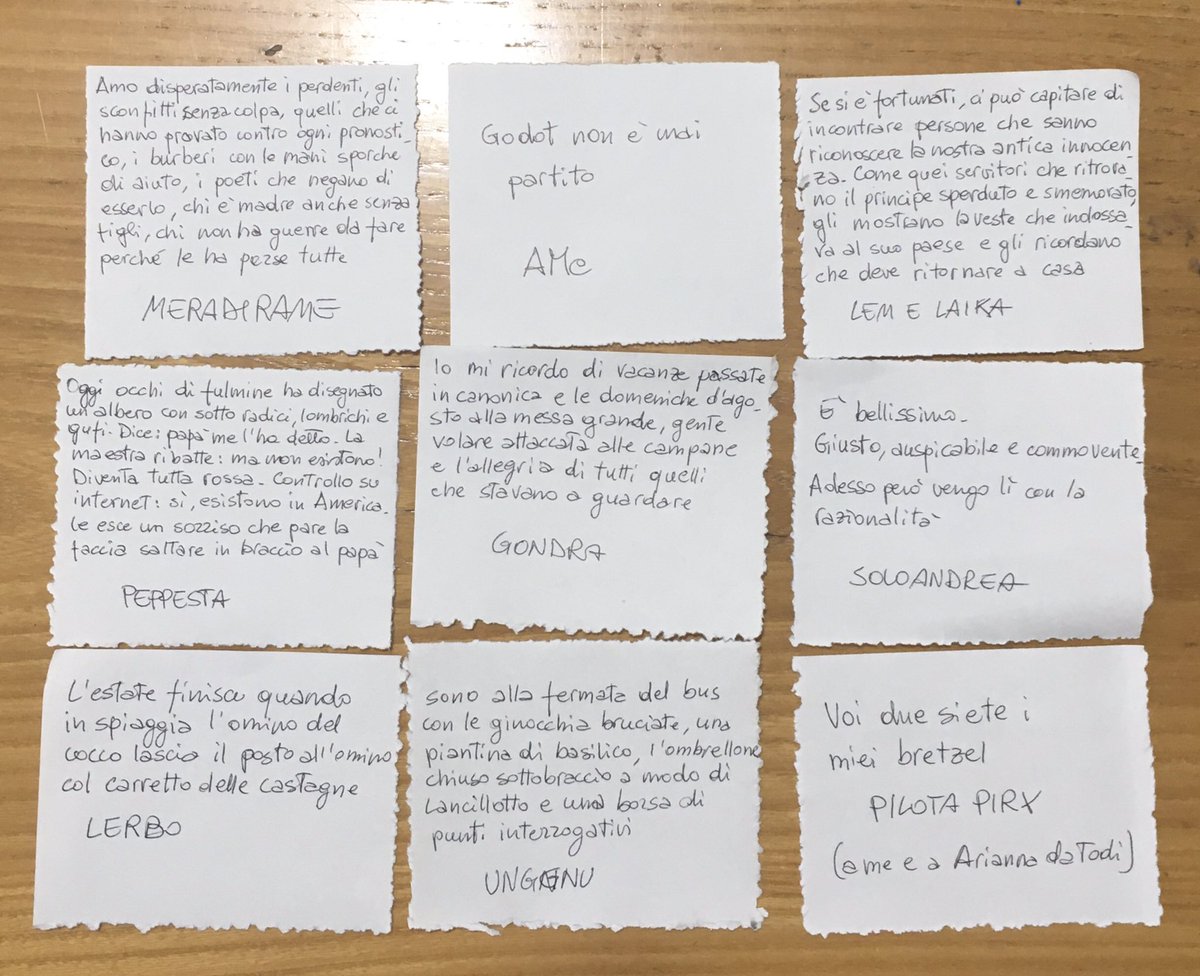 Amo disperatamente i perdenti, gli
sconfitti senza colpa, quelli che ci
hanno provato contro ogni pronosti-
co, i burberi con le mani sporche
di aiuto, i poeti che negano di
esserlo, chi è madre anche senza
figli, chi non ha guerre da fare
perché le ha perse tutte
MERADIRAME
Godot non è mai
partito
AMe
Se si è fortunati, ci può capitare di
incontrare persone che sanno
riconoscere la nostra antica innocen-
za. Come quei servitori che ritrova-
no il principe sperduto e smemorato,
gli mostrano la veste che indossa-
va al suo paese e gli ricordano
che deve ritornare a casa
LEM E LAIKA
Oggi occhi di fulmine ha disegnato
un albero con sotto radici, lombrichi e
gufi. Dice: papà me l'ha detto. La
maestra ribatte: ma non esistono!
Diventa tutta rossa. Controllo su
internet: sì, esistono in America.
Le esce un sorriso che pare la
faccia saltare in braccio al papà
PEPPESTA
Io mi ricordo di vacanze passate
in canonica e le domeniche d'ago-
sto alla messa grande, gente
volare attaccata alle campane
e l'allegria di tutti quelli
che stavano a guardare
GONDRA
È bellissimo.
Giusto, auspicabile e commovente.
Adesso però vengo lì con la
razionalità
SOLOANDREA
L'estate finisce quando
in spiaggia l'omino del
cocco lascia il posto all'omino
col carretto delle castagne
LERBO
sono alla fermata del bus
con le ginocchia bruciate, una
piantina di basilico, l'ombrellone
chiuso sottobraccio a modo di
Lancillotto e una borsa di
punti interrogativi
UNGENU
Voi due siete i
miei bretzel
PILOTA PIRX
(a me e a Arianna da Todi)